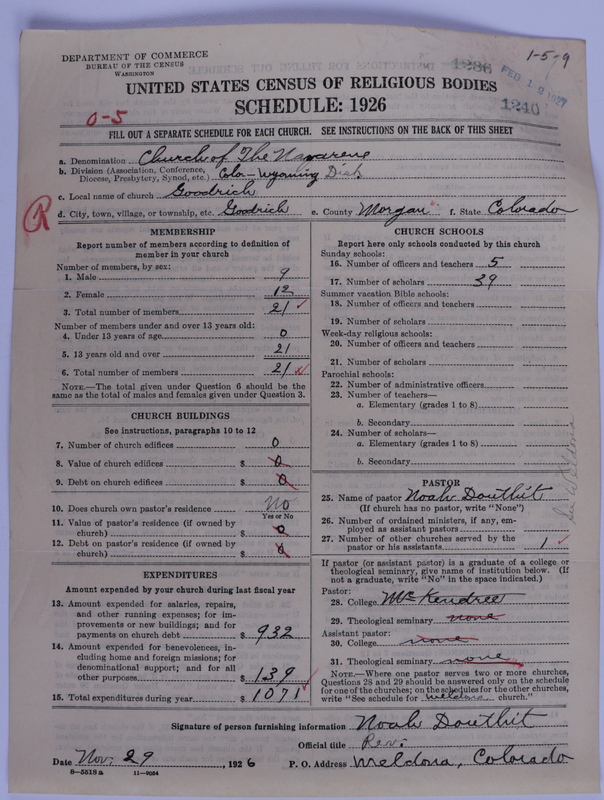 DEPARTMENT OF COMMERCE
BUREAU OF THE CENSUS
WASHINGTON
1286
FEB 12 1927
1240
1-5-9
UNITED STATES CENSUS OF RELIGIOUS BODIES
SCHEDULE: 1926
0-5
FILL OUT A SEPARATE SCHEDULE FOR EACH CHURCH. SEE INSTRUCTIONS ON THE BACK OF THIS SHEET
a. Denomination Church of The Nazarene
b. Division (Association, Conference, Diocese, Presbytery, Synod, etc.) Colo-Wyoming Dist
c. Local name of church Goodrich
R
d. City, town, village, or township, etc. Goodrich e. County Morgan f. State Colorado
MEMBERSHIP
Report number of members according to definition of
member in your church
Number of members, by sex:
1. Male 9
2. Female 12
3. Total number of members 21
Number of members under and over 13 years old:
4. Under 13 years of age 0
5. 13 years old and over 21
6. Total number of members 21
NOTE.—The total given under Question 6 should be
same as the total of males and females given under Question 3.
CHURCH BUILDINGS
See instructions, paragraphs 10 to 12
7. Number of church edifices 0
8. Value of church edifices $ 0
9. Debt on church edifices $ 0
10. Does church own pastor's residence No
Yes or No
11. Value of pastor's residence (if owned by
church) $ 0
12. Debt on pastor's residence (if owned by
church) $ 0
EXPENDITURES
Amount expended by your church during last fiscal year
13. Amount expended for salaries, repairs,
and other running expenses; for im-
provements or new buildings; and for
payments on church debt $ 932
14. Amount expended for benevolences, in-
cluding home and foreign missions; for
denominational support; and for all
other purposes $ 139
15. Total expenditures during year $ 1071
CHURCH SCHOOLS
Report here only schools conducted by this church
Sunday schools:
16. Number of officers and teachers 5
17. Number of scholars 39
Summer vacation Bible schools:
18. Number of officers and teachers
19. Number of scholars
Week-day religious schools:
20. Number of officers and teachers
21. Number of scholars
Parochial schools:
22. Number of administrative officers
23. Number of teachers—
a. Elementary (grades 1 to 8)
b. Secondary
24. Number of scholars—
a. Elementary (grades 1 to 8)
b. Secondary
PASTOR
25. Name of pastor Noah Douthit
(If church has no pastor, write "None")
26. Number of ordained ministers, if any, em-
ployed as assistant pastors
27. Number of other churches served by the
pastor or his assistants 1
If pastor (or assistant pastor) is a graduate of a college or
theological seminary, give name of institution below. (If
not a graduate, write "No" in the space indicated.)
Pastor:
28. College McKendree
29. Theological seminary none
Assistant pastor:
30. College none
31. Theological seminary none
NOTE.—Where one pastor serves two or more churches,
Questions 28 and 29 should be answered only on the schedule
for one of the churches; on the schedules for the other churches,
write "See schedule for Weldona church."
Signature of person furnishing information Noah Douthit
Official title Rev.
Date Nov. 29, 1926 P. O. Address Weldona, Colorado
8—5518a 11—9064